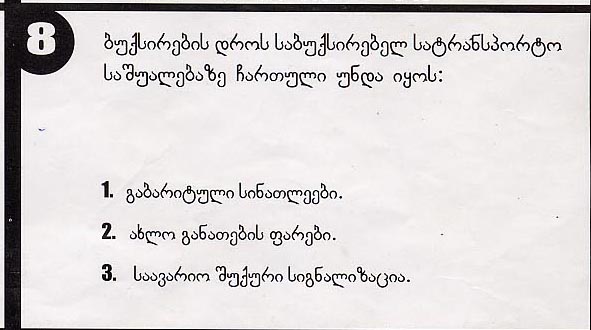 8
ბუქსირების დროს საბუქსირებელ სატრანსპორტო
საშუალებაზე ჩართული უნდა იყოს:
1. გაბარიტული სინათლეები.
2. ახლო განათების ფარები.
3. საავარიო შუქური სიგნალიზაცია.